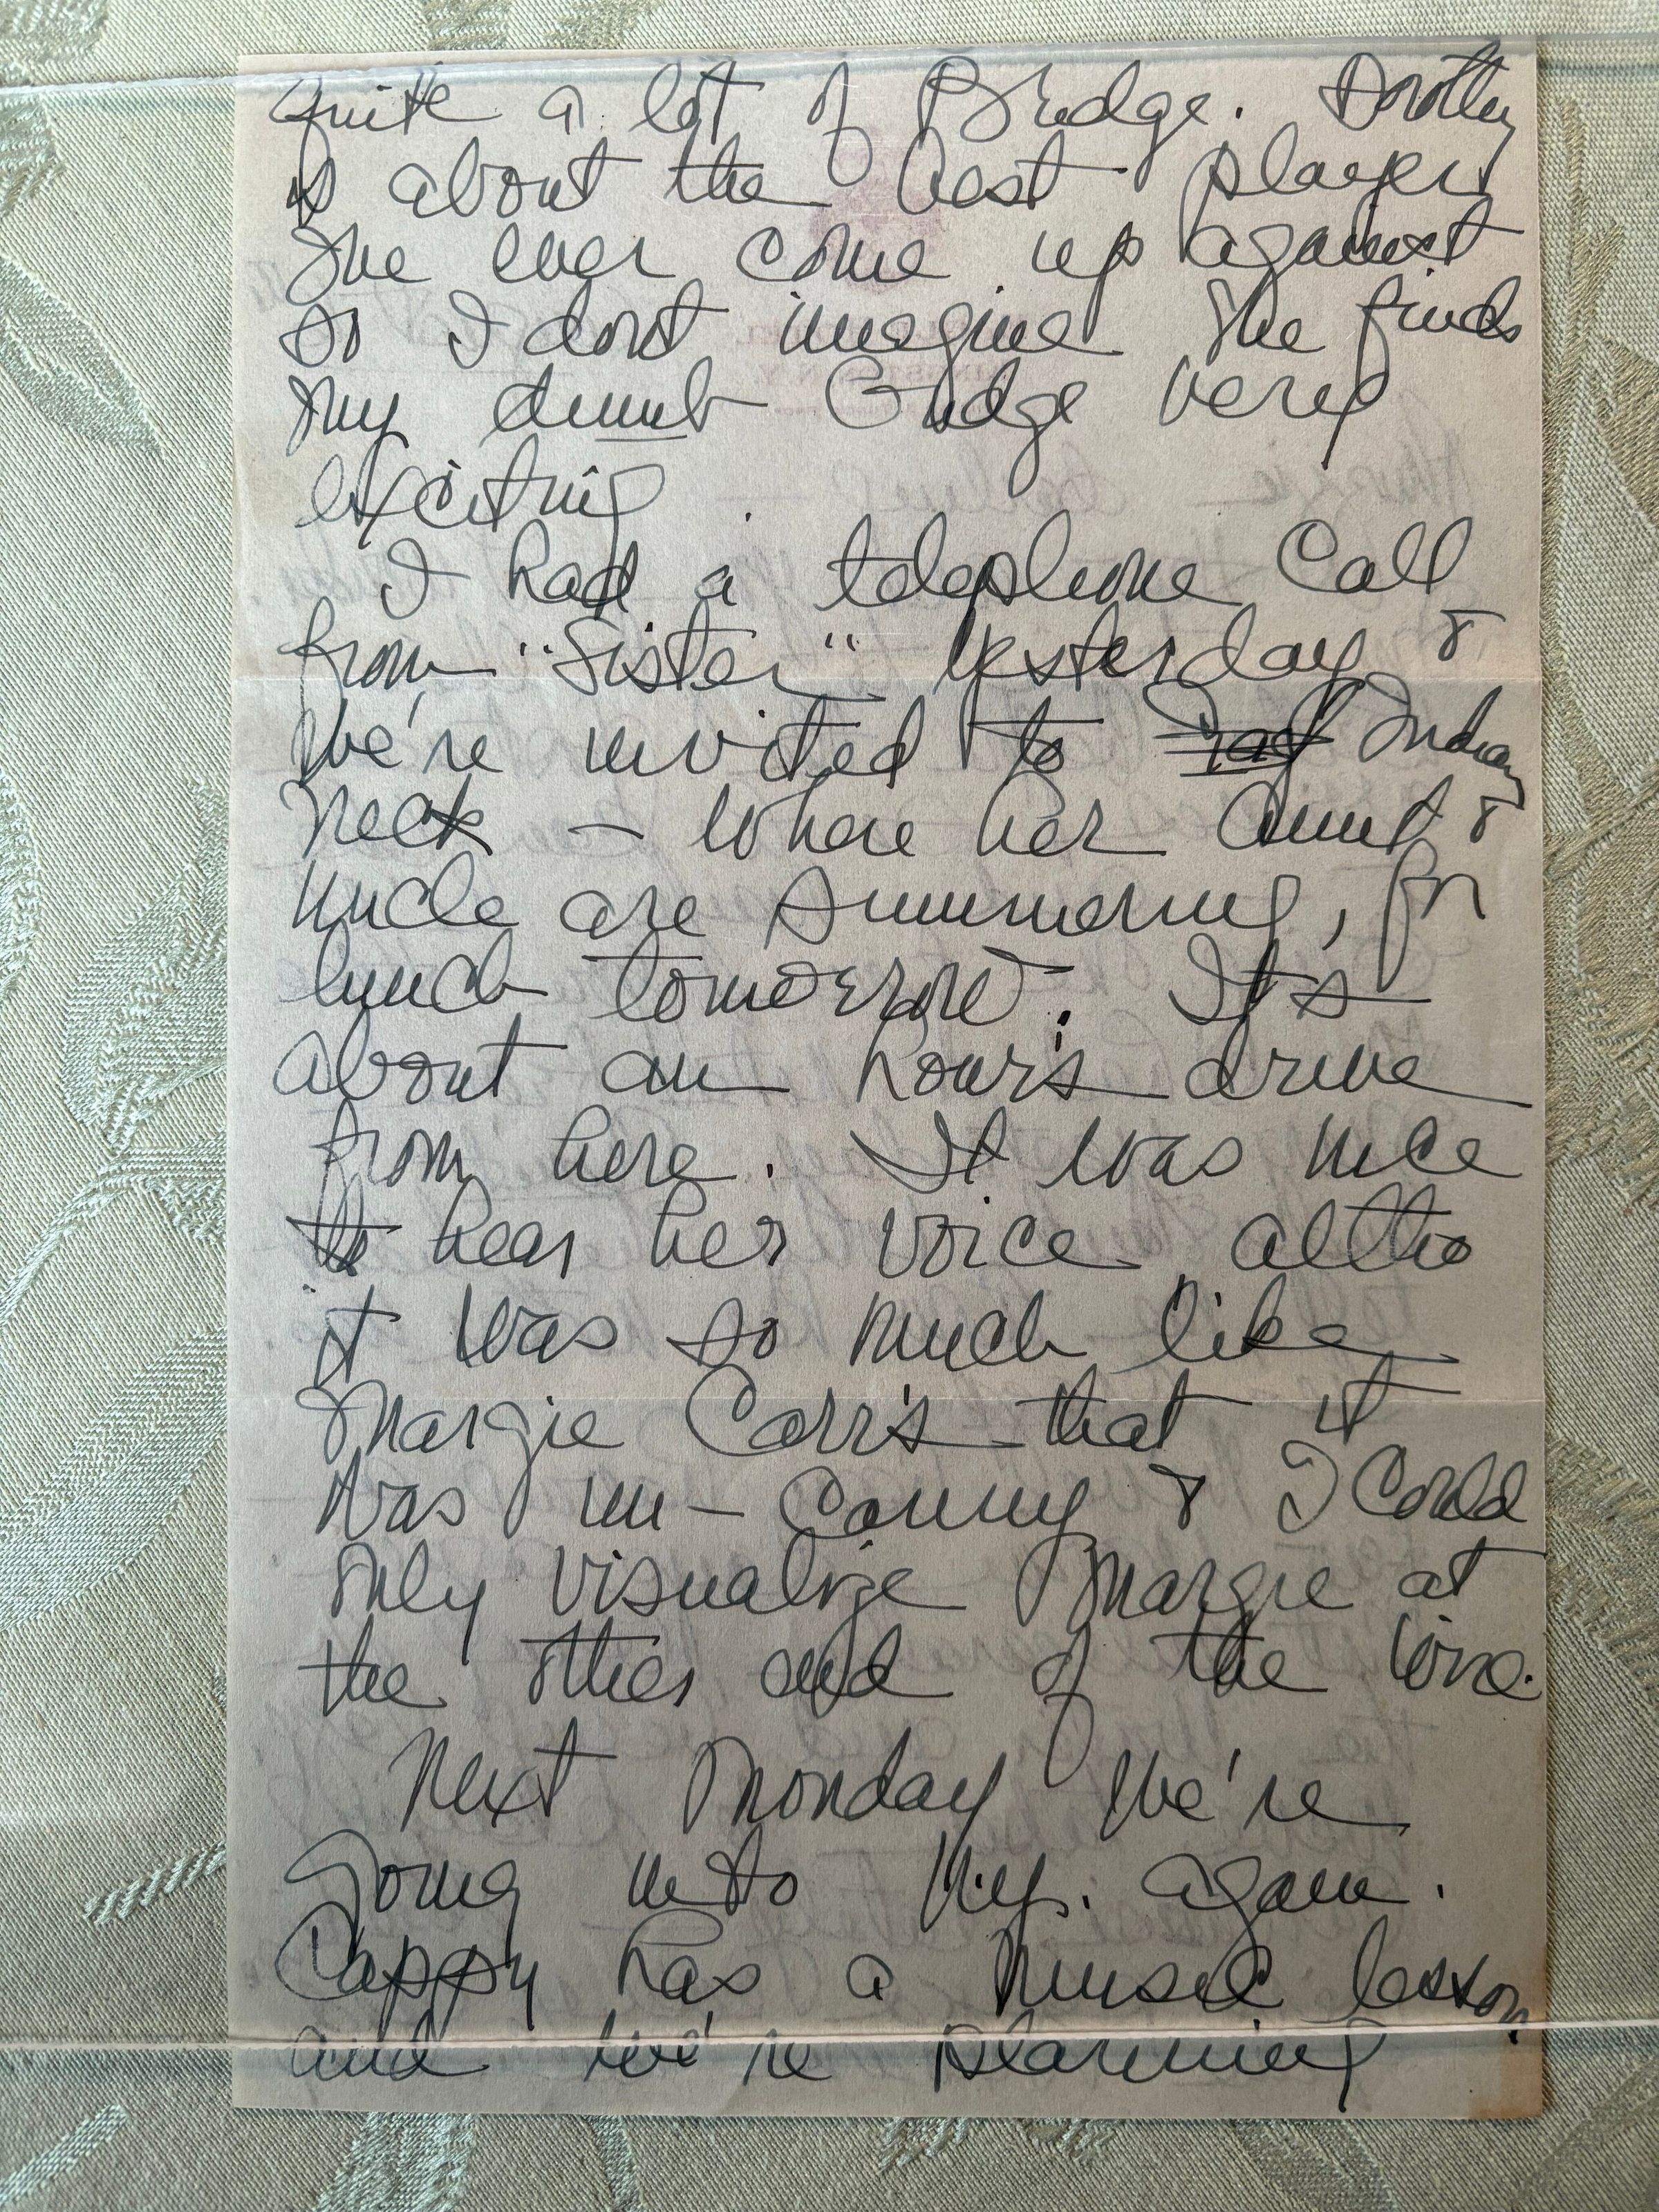 quite a lot of Bridge. Dorothy
is about the best player
I've ever come up against
so I dont imagine she finds
my dumb Bridge very
exciting
I had a telephone call
from "Sister" yesterday &
we're invited to Indian
Neck – where her Aunt &
Uncle are summering, for
lunch tomorrow. It's
about an hour's drive
from here. It was nice
to hear her voice altho
it was so much like
Margie Carr's that it
was un–canny & I could
only visualize Margie at
the other end of the wire.
Next Monday we're
going into N.y. again.
Cappy has a music lesson
and we're planning